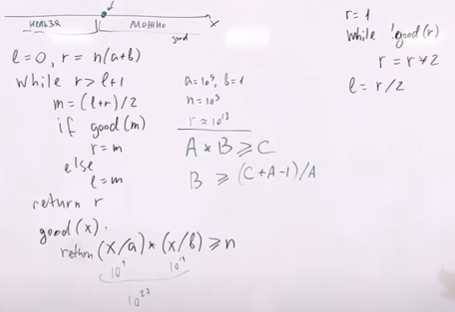 нельзя можно x
good
l=0, r=n(a+b)
while r>l+1
m=(l+r)/2
if good(m)
r=m
else
l=m
return r
good(x):
return (x/a)*(x/b)≥n
10⁹ 10¹⁸
10²⁷
a=10⁹, b=1
n=10⁹
r≈10¹⁸
A*B≥C
B≥(C+A-1)/A
r=1
while !good(r)
r=r*2
l=r/2